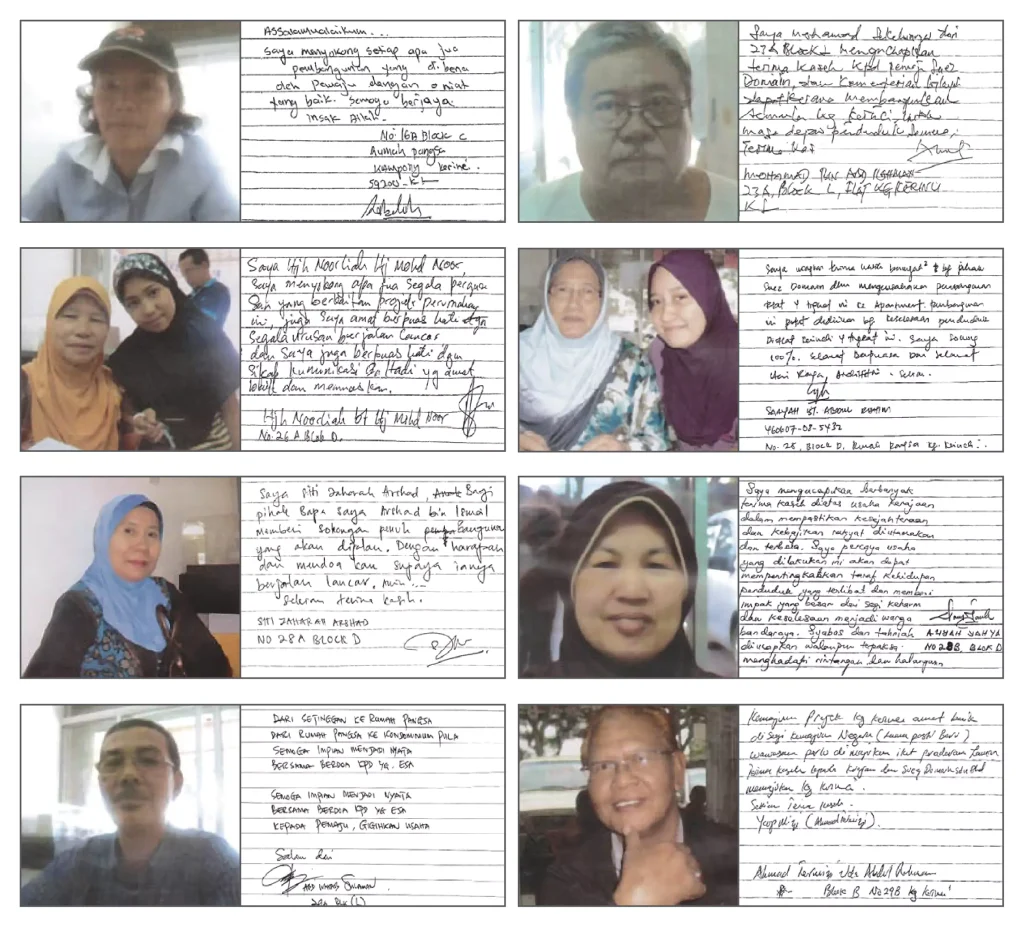 Assalammualaikum...
Saya menyokong setiap apa jua
pembangunan yang dibena
oleh pemaju dengan niat
yang baik. Semoga berjaya
insak Allah.
No: 16A Block C
Rumah pangsa
Kampong Kerinci.
59200 - KL
Saya Mohamad
23A Block L Mengucapkan
terima kaseh kpd pemaju Suez
Domain, dan Kementerian
dapat kerana membangunkan
semula kg kerinci, untuk
masa depan penduduk semua.
Terima Kasih
MOHAMAD BIN ABD RAHMAN
23A, BLOCK L, FLAT KG KERINCI
KL
Saya Hjh Noorliah Hj Mohd Noor,
Saya menyokong apa jua segala
yang berkaitan projek perumahan
ini, juga saya amat berpuas hati dgn
Segala urusan berjalan lancar
dan saya juga berpuas hati dgn
Sikap komunikasi En Hadi yg amat
baik dan memuaskan.
Hjh Noorliah bt Hj Mohd Noor
No. 26 A Blok D.
Saya ucapkan terima kasih banyak² kpd pihak
Suez Domain dlm mengusahakan pembangunan
flat 4 tingkat ini ke Apartment. Pembangunan
ini patut diadakan bg keselesaan penduduk
Digital Kerinchi 4 tingkat ini. Saya Sokong
100%. Selamat Berpuasa Dan Selamat
Hari Raya, Aidilfitri. Sekian.
BT. ABDUL RAHIM
460607-08-5432
No. 28, Block D, Rumah Pangsa Kg. Kerinchi.
Saya Siti Zaharah Arshad, Bagi
pihak Bapa saya Arshad bin Ismail
memberi sokongan penuh Pembangunan
yang akan dijalan. Dengan harapan
dan mendoa kan supaya ianya
berjalan lancar. Amin...
Sekian terima kasih.
SITI ZAHARAH ARSHAD
NO 28A BLOCK D
Saya mengucapkan berbanyak
terima kasih diatas usaha kerajaan
dalam mempastikan kesejahteraan
dan kebajikan rakyat diutamakan
dan terbela. Saya percaya usaha
yang dilakukan ini akan dapat
mempertingkatkan taraf kehidupan
penduduk yang terlibat dan memberi
impak yang besar dari segi keharm
dan keselesaan menjadi warga
bandaraya. Syabas dan tahniah
diucapkan walaupun terpaksa
menghadapi rintangan dan halangan
YAHYA
NO 28B, BLOCK D
DARI SETINGGAN KE RUMAH PANGSA
DARI RUMAH PANGSA KE KONDOMINIUM PULA
SEMOGA IMPIAN MENJADI NYATA
BERSAMA BERDOA KPD YG. ESA
SEMOGA IMPIAN MENJADI NYATA
BERSAMA BERDOA KPD YG ESA
KEPADA PEMAJU, GIGIHKAN USAHA
Salam dari
Kemajuan Projek kg kerinci amat baik
di segi kemajuan Negara
wawasan perlu di wujudkan ikut peredaran
Terima kaseh kepada Kerajaan dan Suez Domain Sdn Bhd
memajukan kg Kerinci.
Sekian Terima kaseh.
Yang
Block B No 29B kg Kerinci